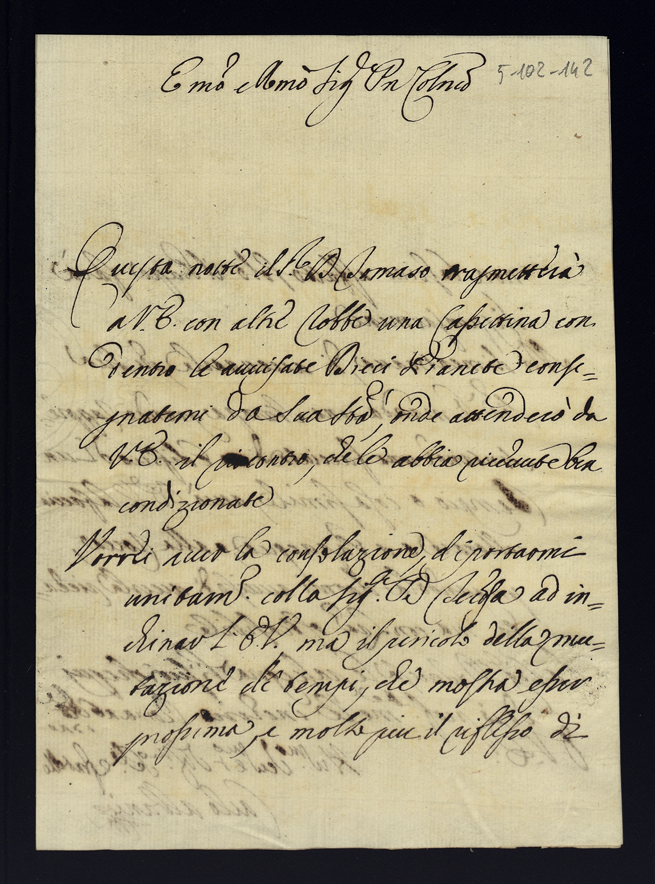 Emo e Rmo Sig Pn Colmo
5-102-142
Questa notte il Sr D Tomaso trasmetterà
a V. E. con altre robbe una Cassettina con
dentro le avvisate Dieci Pianete conse=
gnatemi da Sua Stà, onde attenderò da
V E. il riscontro, che le abbia ricevute ben
condizionate
Vorrei aver la consolazione, di portarmi
unitam. colla Sig. Da ad in=
chinar l' E V. ma il pericolo della mu=
tazione de tempi, che mostra esser
prossima, e molto piu il riflesso di